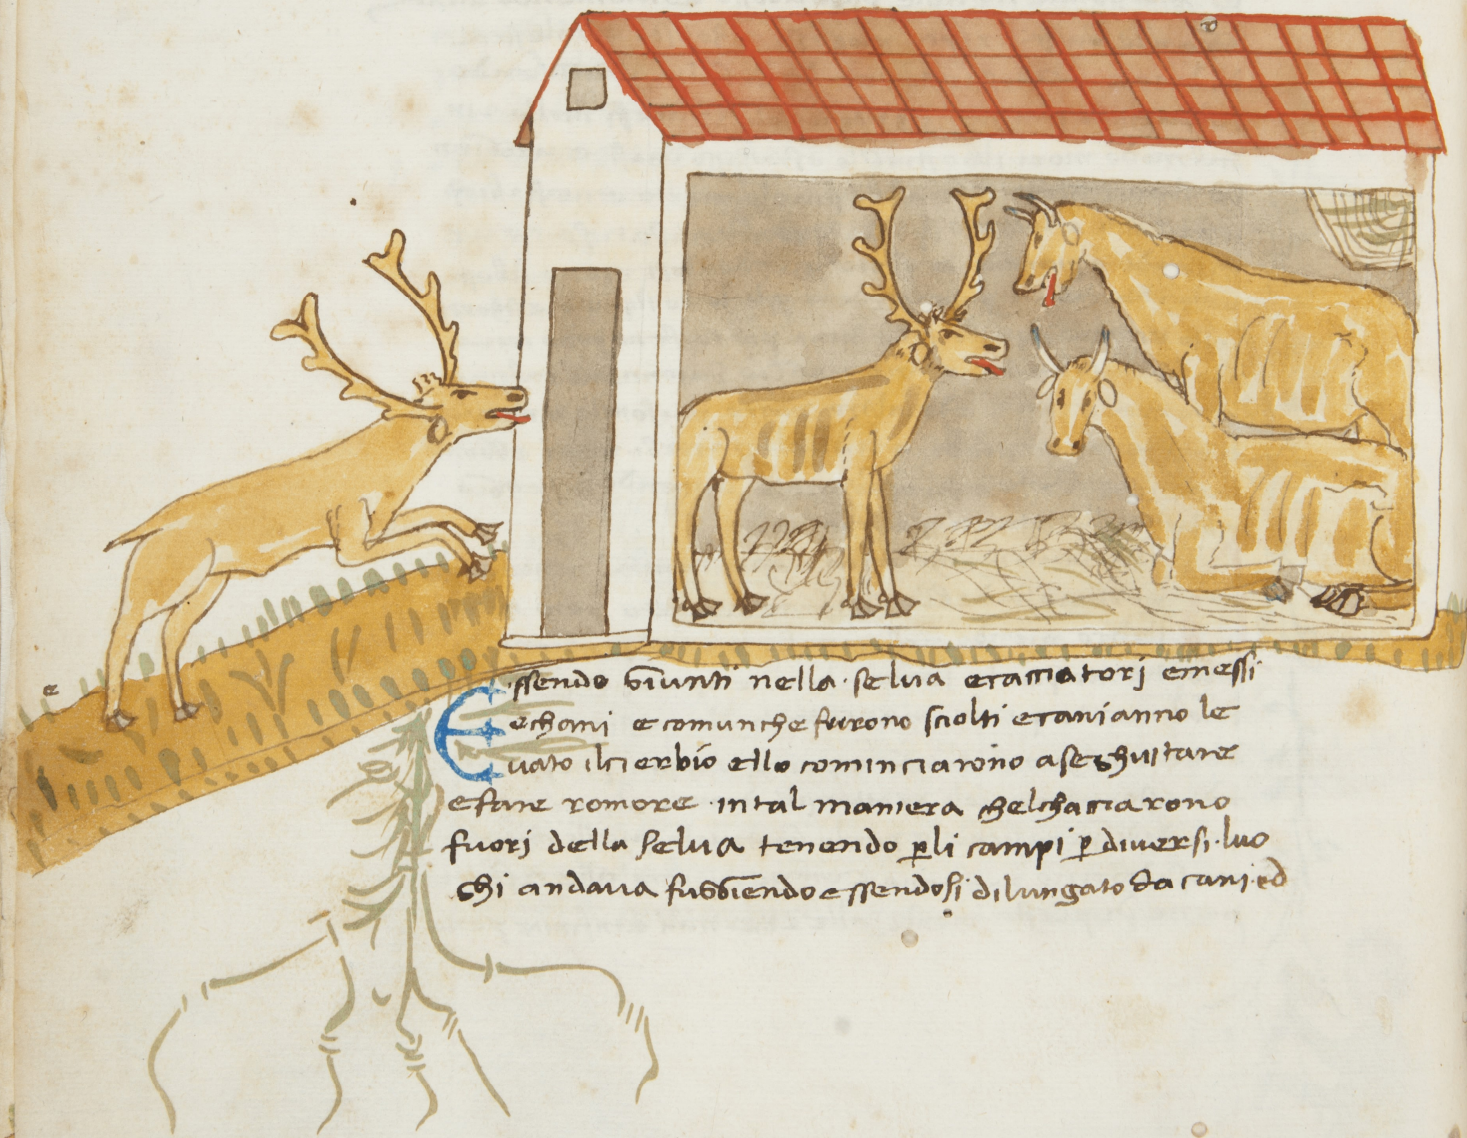 e
Essendo giunti nella selva e cacciatori e messi
e chani e comunche furono sciolti e cani anno le
vato il cierbio e llo cominciarono a seghuitare
e fare romore in tal maniera chel chacciarono
fuori della selva tenendo p li campi p diversi luo
ghi andava fuggiendo e ssendosi dilungato da cani ed